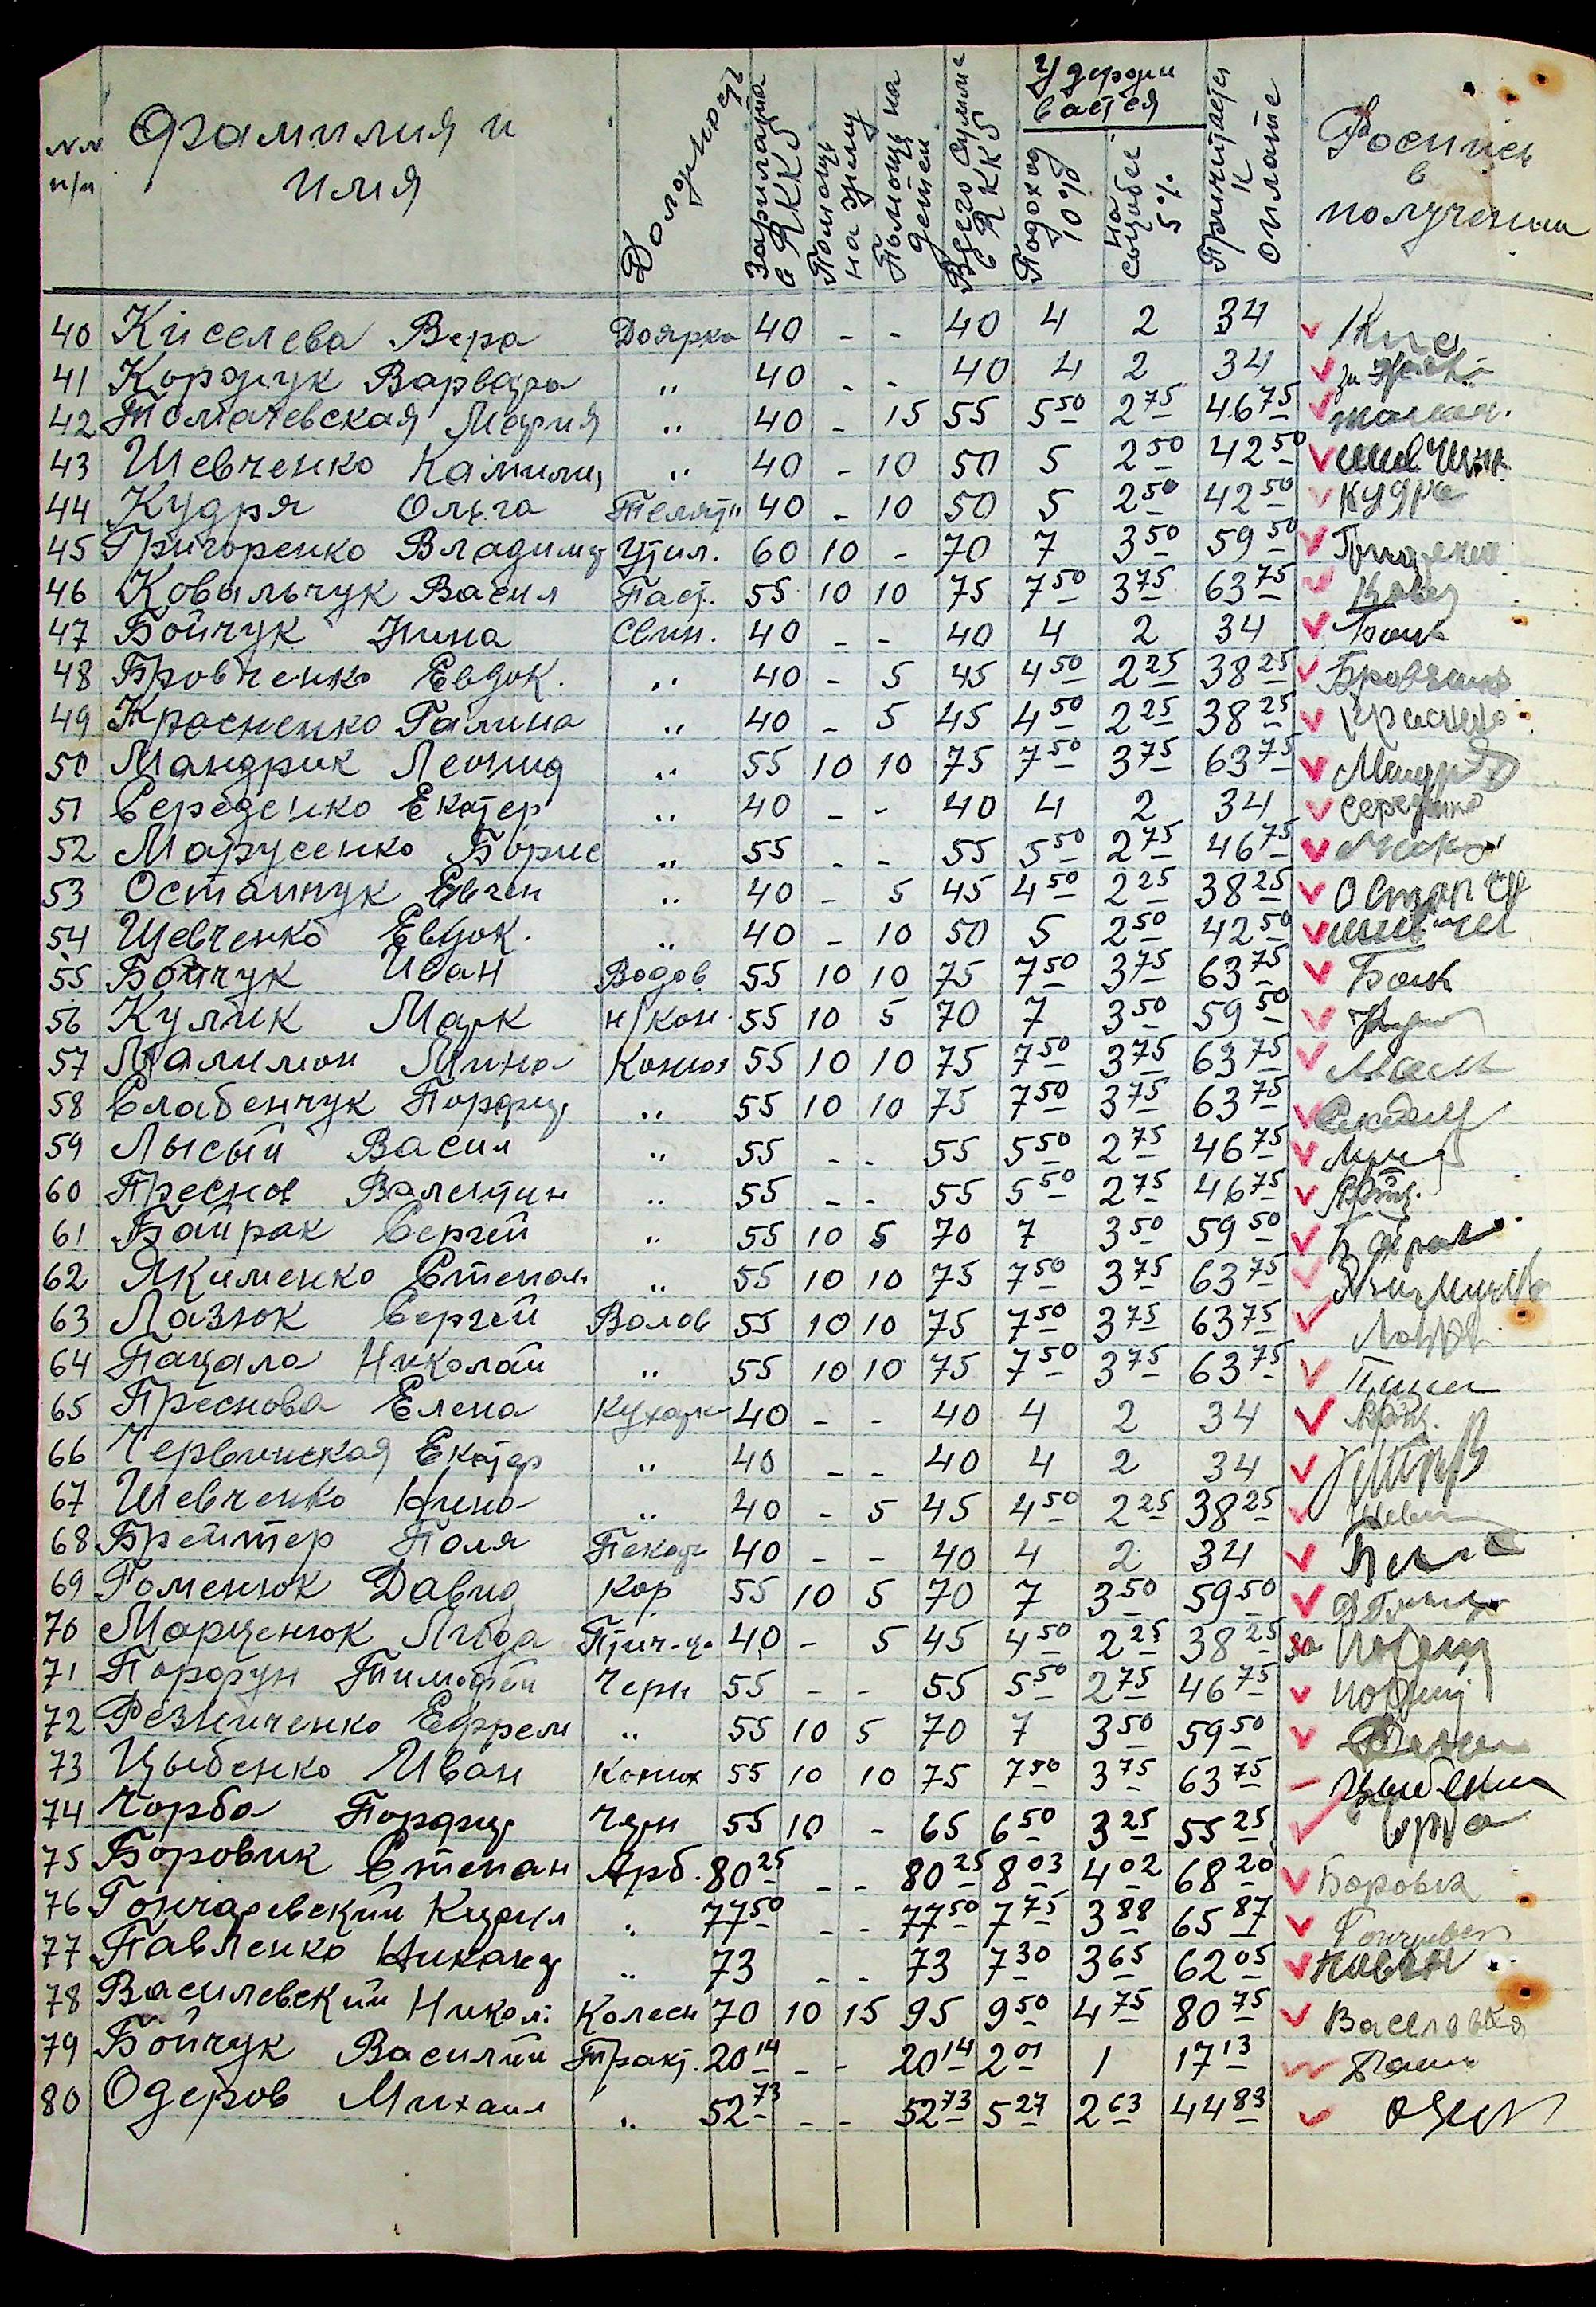 №№ п/п Фамилия и имя Должность Зарплата в RKKS Помощь на жену Помощь на детей Всего сумма в RKKS Удерживается Подоход 10% на соцобес 5% Причитается к оплате Роспись в получении
40 Киселева Вера Доярка 40 - - 40 4 2 34 Кис
41 Кордчук Варвара " 40 - - 40 4 2 34 за
42 Толмачевская Мария " 40 - 15 55 5 50 2 75 46 75
43 Шевченко Камили " 40 - 10 50 5 2 50 42 50
44 Кудря Ольга Телят 40 - 10 50 5 2 50 42 50 Кудря
45 Григоренко Владимир Упил. 60 10 - 70 7 3 50 59 50
46 Ковальчук Васил Паст. 55 10 10 75 7 50 3 75 63 75
47 Бойчук Нина Свин. 40 - - 40 4 2 34 Боич
48 Бровченко Евдок. " 40 - 5 45 4 50 2 25 38 25
49 Красненко Галина " 40 - 5 45 4 50 2 25 38 25
50 Мандрик Леонид " 55 10 10 75 7 50 3 75 63 75
51 Середенко Екатер " 40 - - 40 4 2 34
52 Марусенко Борис " 55 - - 55 5 50 2 75 46 75
53 Остапчук Евген " 40 - 5 45 4 50 2 25 38 25 Остапчу
54 Шевченко Евдок. " 40 - 10 50 5 2 50 42 50
55 Бойчук Иван Водов 55 10 10 75 7 50 3 75 63 75 Боич
56 Кулик Марк н/кон. 55 10 5 70 7 3 50 59 50
57 Малимон Мина Конюх 55 10 10 75 7 50 3 75 63 75
58 Слабенчук Порфир " 55 10 10 75 7 50 3 75 63 75
59 Лысый Васил " 55 - - 55 5 50 2 75 46 75
60 Преснов Валентин " 55 - - 55 5 50 2 75 46 75
61 Байрак Сергей " 55 10 5 70 7 3 50 59 50
62 Якименко Степан " 55 10 10 75 7 50 3 75 63 75
63 Лазюк Сергей Волов 55 10 10 75 7 50 3 75 63 75
64 Пацала Николай " 55 10 10 75 7 50 3 75 63 75
65 Преснова Елена Кухарк 40 - - 40 4 2 34
66 Червинская Екатер " 40 - - 40 4 2 34
67 Шевченко Нина " 40 - 5 45 4 50 2 25 38 25
68 Брейтер Поля Пекар 40 - - 40 4 2 34
69 Гоменюк Давид Кор 55 10 5 70 7 3 50 59 50
70 Марценюк Люба Птич-ца 40 - 5 45 4 50 2 25 38 25 за
71 Порфун Тимофей Черн 55 - - 55 5 50 2 75 46 75
72 Резниченко Ефрем " 55 10 5 70 7 3 50 59 50
73 Цыбенко Иван Конюх 55 10 10 75 7 50 3 75 63 75 Цыбенко
74 Чорба Порфир Черн 55 10 - 65 6 50 3 25 55 25
75 Боровик Степан Арб. 80 25 - - 80 25 8 03 4 02 68 20 Боровик
76 Гончаревский Кирил " 77 50 - - 77 50 7 75 3 88 65 87
77 Павленко Никанд " 73 - - 73 7 30 3 65 62 05
78 Василевский Никол. Колесн 70 10 15 95 9 50 4 75 80 75
79 Бойчук Василий Тракт. 20 14 - - 20 14 2 01 1 17 13
80 Одеров Михаил " 52 73 - - 52 73 5 27 2 63 44 83